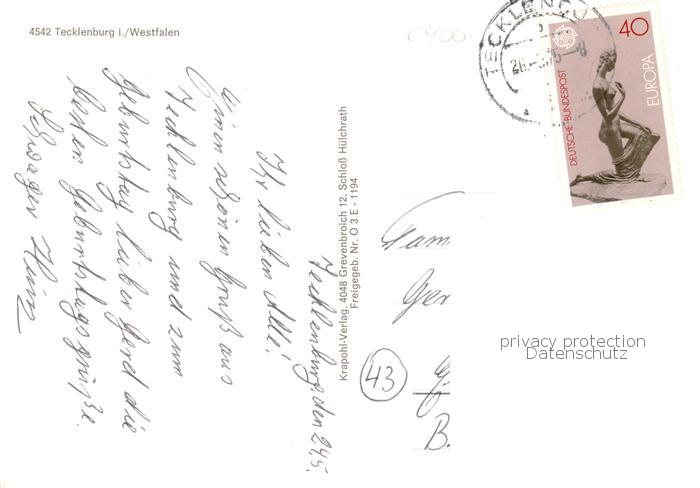 4542 Tecklenburg i./Westfalen
Tecklenburg, den 24.5.
Ihr lieben Alle!
Einen schönen Gruß aus
Tecklenburg und zum
Geburtstag lieber Gerd die
besten Geburtstagsgrüße.
Schwager Heinz
Krapohl-Verlag, 4048 Grevenbroich 12, Schloß Hülchrath
Freigegeb. Nr. O 3 E - 1194
TECKLENBU
DEUTSCHE BUNDESPOST
40
EUROPA
Fam
Ger
43
B.
privacy protection
Datenschutz